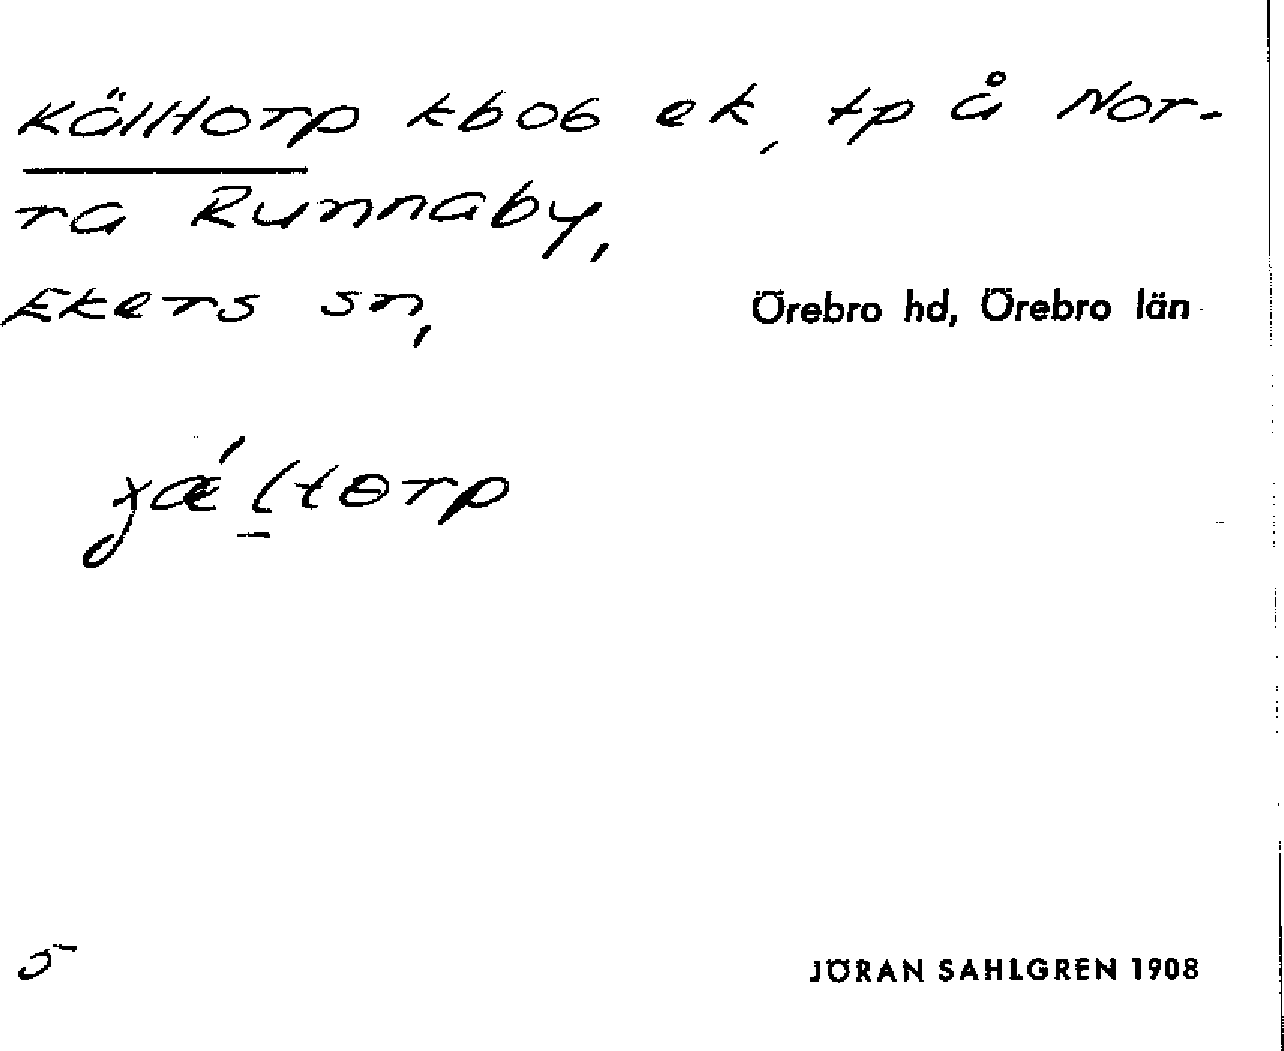 Källtorp kbo6 ek, tp å Nor-
ra Runnaby,
Ekers sn, Örebro hd, Örebro län
5 JÖRAN SAHLGREN 1908